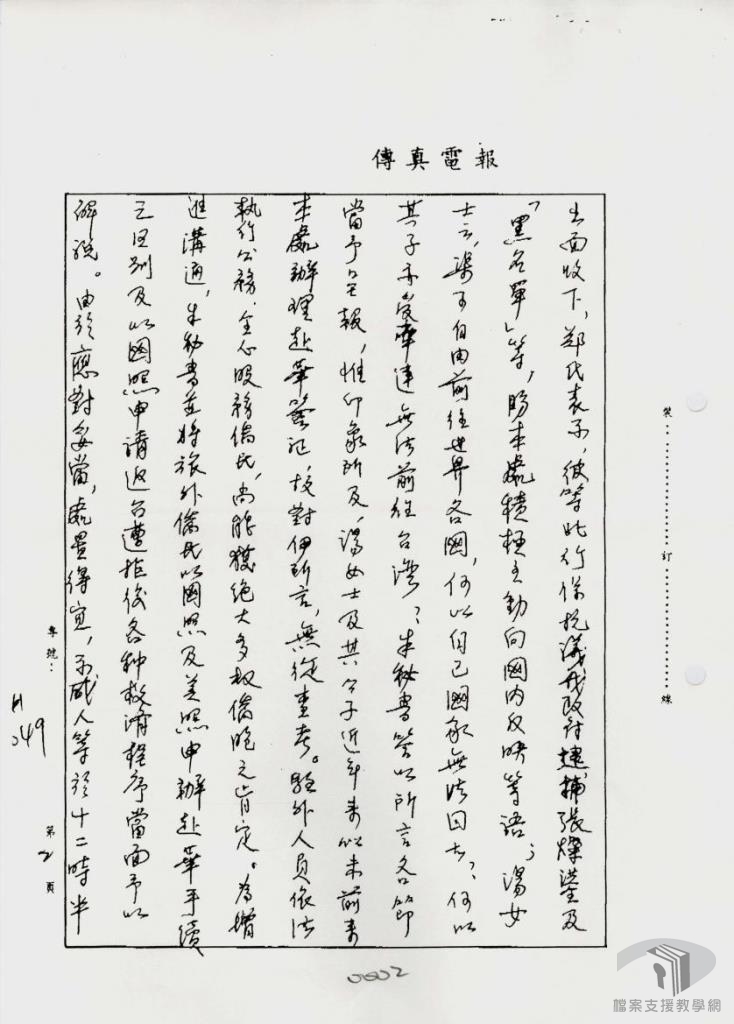 傳真電報
出面收下，鄭氏表示，彼等此行係抗議我政府逮捕張燦鍙及
「黑名單」等，盼本處積極主動向國內反映等語；湯女
士云，渠可自由前往世界各國，何以自己國家無法回去？，何以
其子亦受牽連無法前往台灣？；朱秘書答以所言各節
當予呈報，惟印象所及，湯女士及其公子近年來似未前來
本處辦理赴華簽證，核對伊所言，無從查考。駐外人員依法
執行公務，全心服務僑民，尚能獲絕大多數僑胞之肯定。為增
進溝通，朱秘書並將旅外僑民以國照及美照申辦赴華手續
之區別及以國照申請返台遭拒後各種救濟程序當面予以
解說。由於應對妥當，處置得宜，示威人等於十二時半
裝 訂 線
專號：
H
049
第2頁
0002
檔案支援教學網